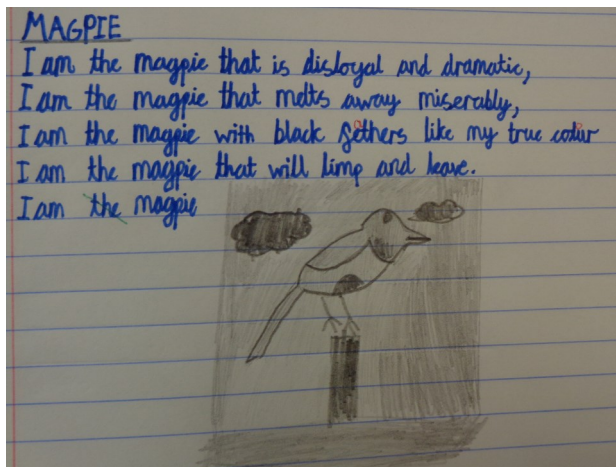 MAGPIE
I am the magpie that is disloyal and dramatic,
I am the magpie that melts away miserably,
I am the magpie with black fethers like my true colur
I am the magpie that will limp and leave.
I am the magpie